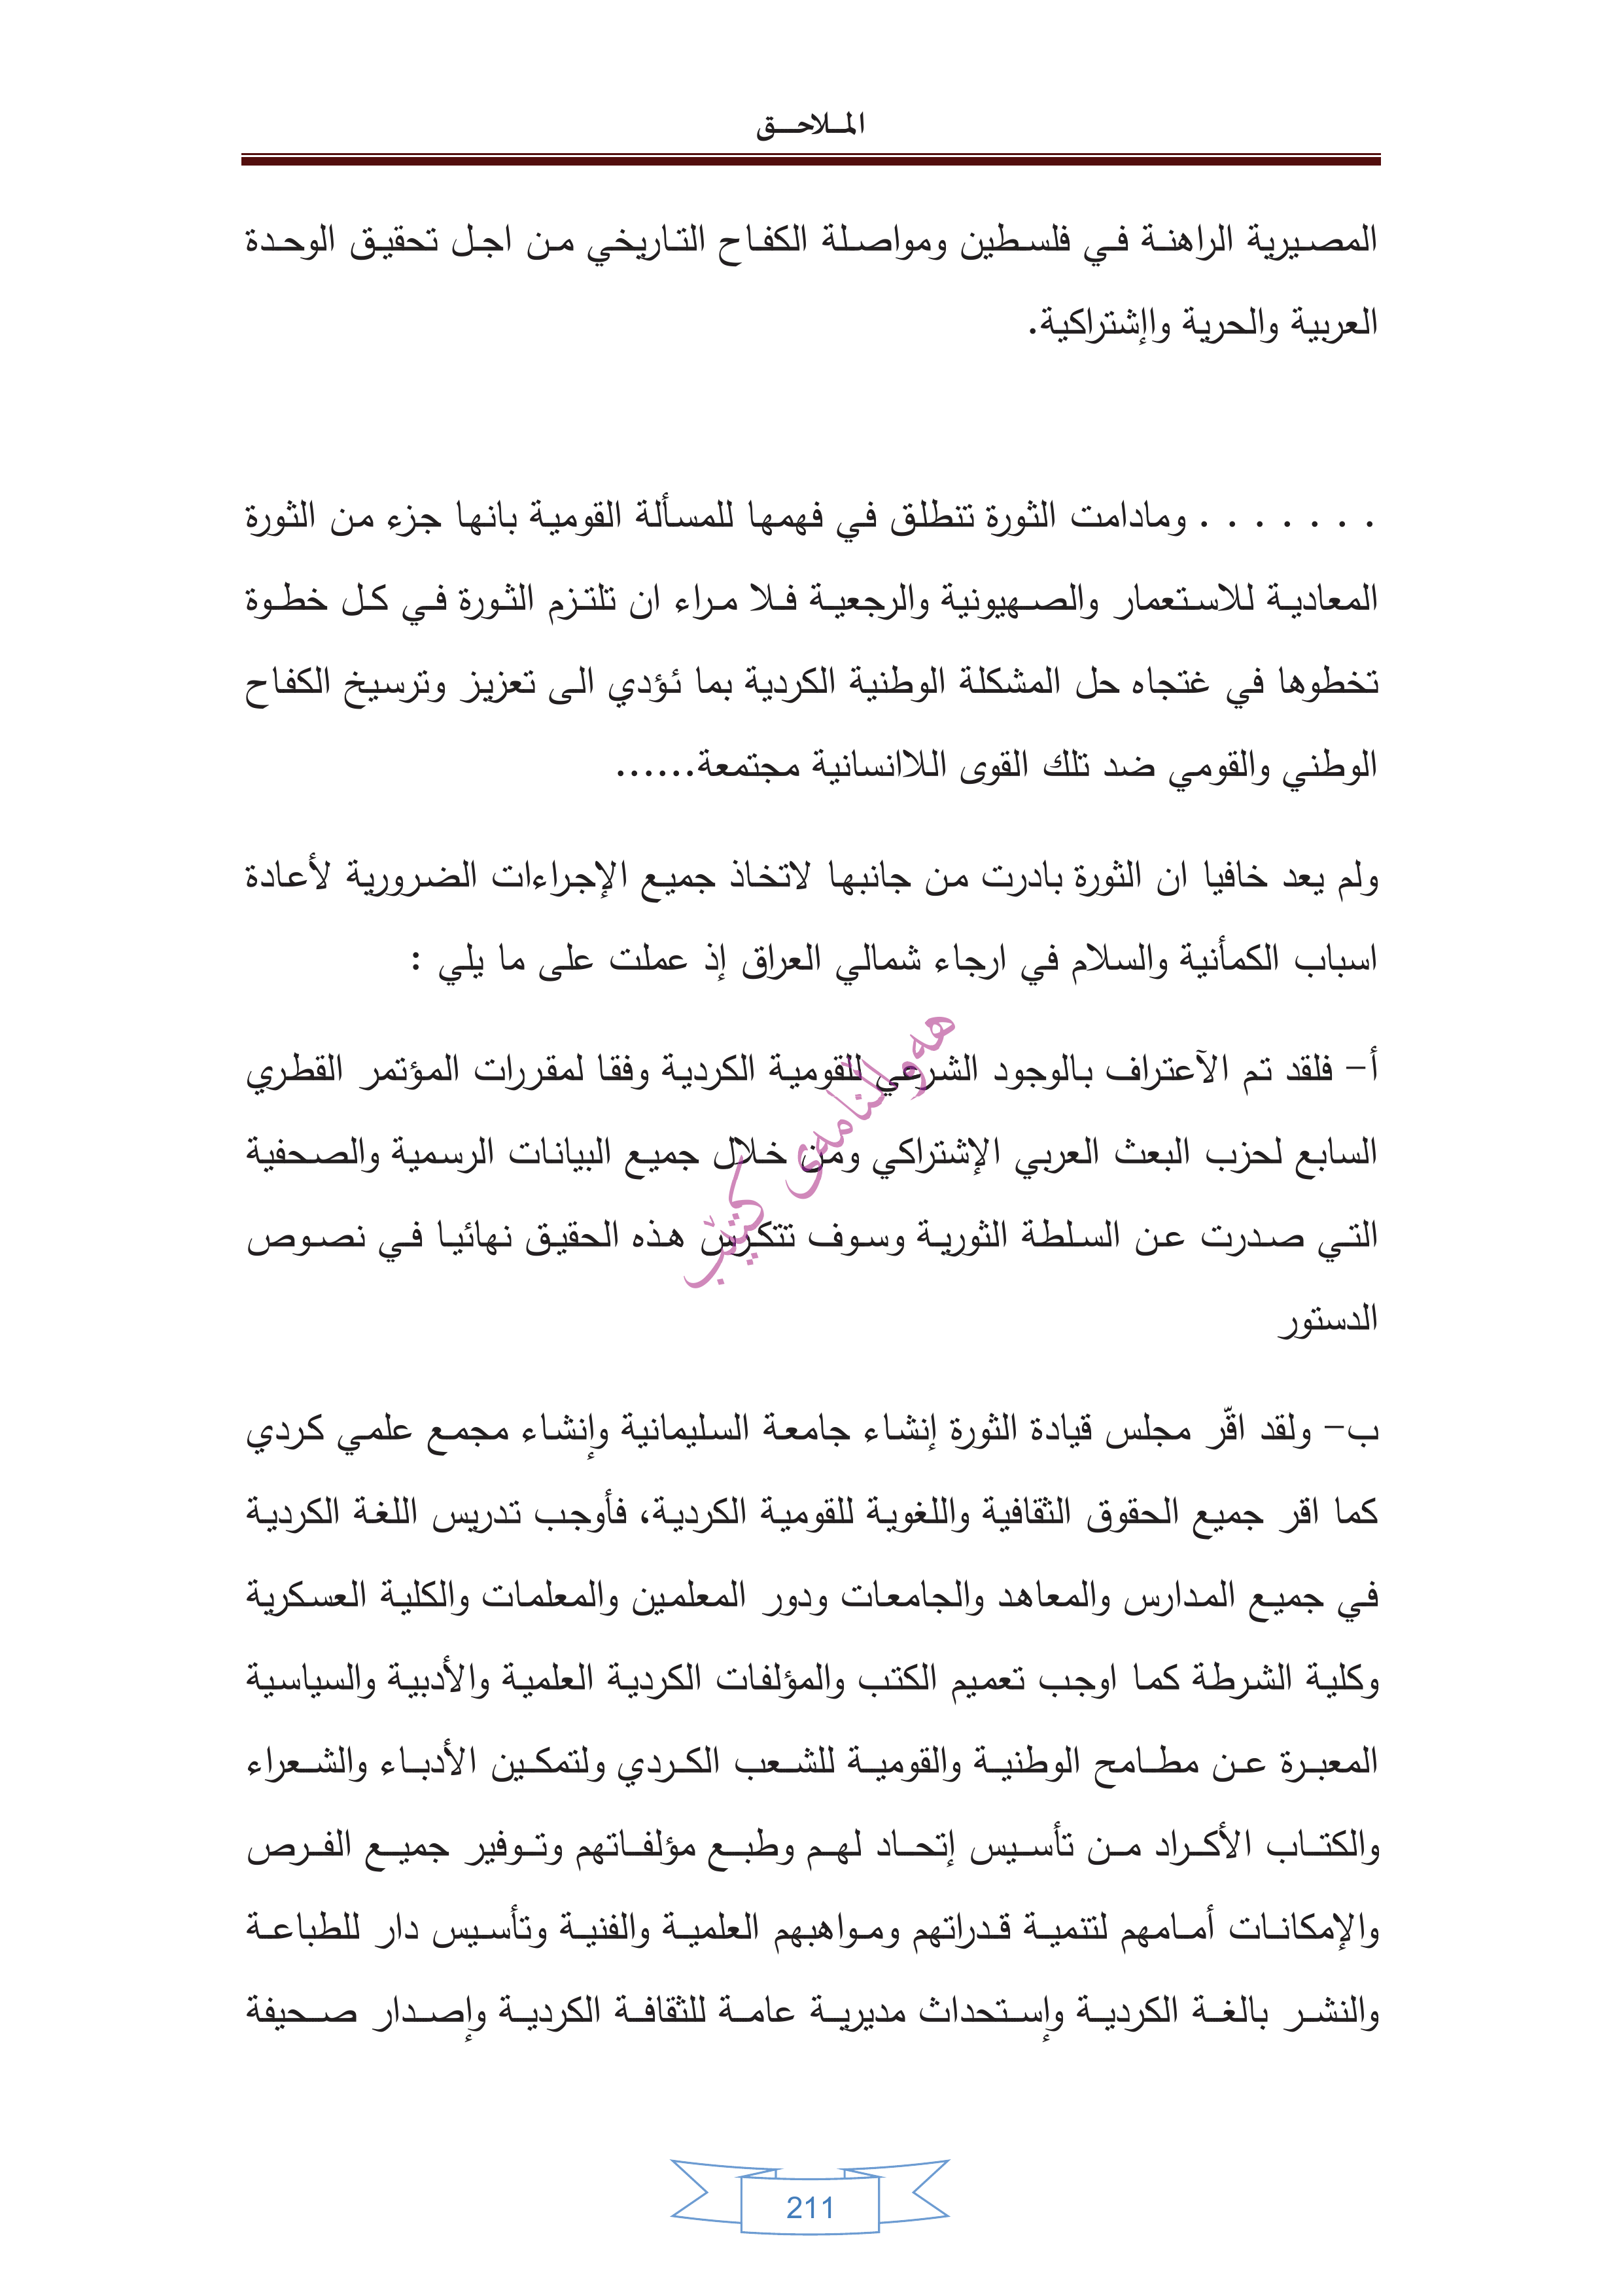 الملاحق
المصيرية الراهنة في فلسطين ومواصلة الكفاح التاريخي من اجل تحقيق الوحدة
العربية والحرية واإشتراكية.
. . . . . . . ومادامت الثورة تنطلق في فهمها للمسألة القومية بانها جزء من الثورة
المعادية للاستعمار والصهيونية والرجعية فلا مراء ان تلتزم الثورة في كل خطوة
تخطوها في غتجاه حل المشكلة الوطنية الكردية بما ئؤدي الى تعزيز وترسيخ الكفاح
الوطني والقومي ضد تلك القوى اللاانسانية مجتمعة......
ولم يعد خافيا ان الثورة بادرت من جانبها لاتخاذ جميع الإجراءات الضرورية لأعادة
اسباب الكمأنية والسلام في ارجاء شمالي العراق إذ عملت على ما يلي :
أ- فلقد تم الآعتراف بالوجود الشرعي للقومية الكردية وفقا لمقررات المؤتمر القطري
السابع لحزب البعث العربي الإشتراكي ومن خلال جميع البيانات الرسمية والصحفية
التي صدرت عن السلطة الثورية وسوف تتكرس هذه الحقيق نهائيا في نصوص
الدستور
ب- ولقد اقّر مجلس قيادة الثورة إنشاء جامعة السليمانية وإنشاء مجمع علمي كردي
كما اقر جميع الحقوق الثقافية واللغوية للقومية الكردية، فأوجب تدريس اللغة الكردية
في جميع المدارس والمعاهد والجامعات ودور المعلمين والمعلمات والكلية العسكرية
وكلية الشرطة كما اوجب تعميم الكتب والمؤلفات الكردية العلمية والأدبية والسياسية
المعبرة عن مطامح الوطنية والقومية للشعب الكردي ولتمكين الأدباء والشعراء
والكتاب الأكراد من تأسيس إتحاد لهم وطبع مؤلفاتهم وتوفير جميع الفرص
والإمكانات أمامهم لتنمية قدراتهم ومواهبهم العلمية والفنية وتأسيس دار للطباعة
والنشر بالغة الكردية وإستحداث مديرية عامة للثقافة الكردية وإصدار صحيفة
هەواڵنامەی کتێب
211